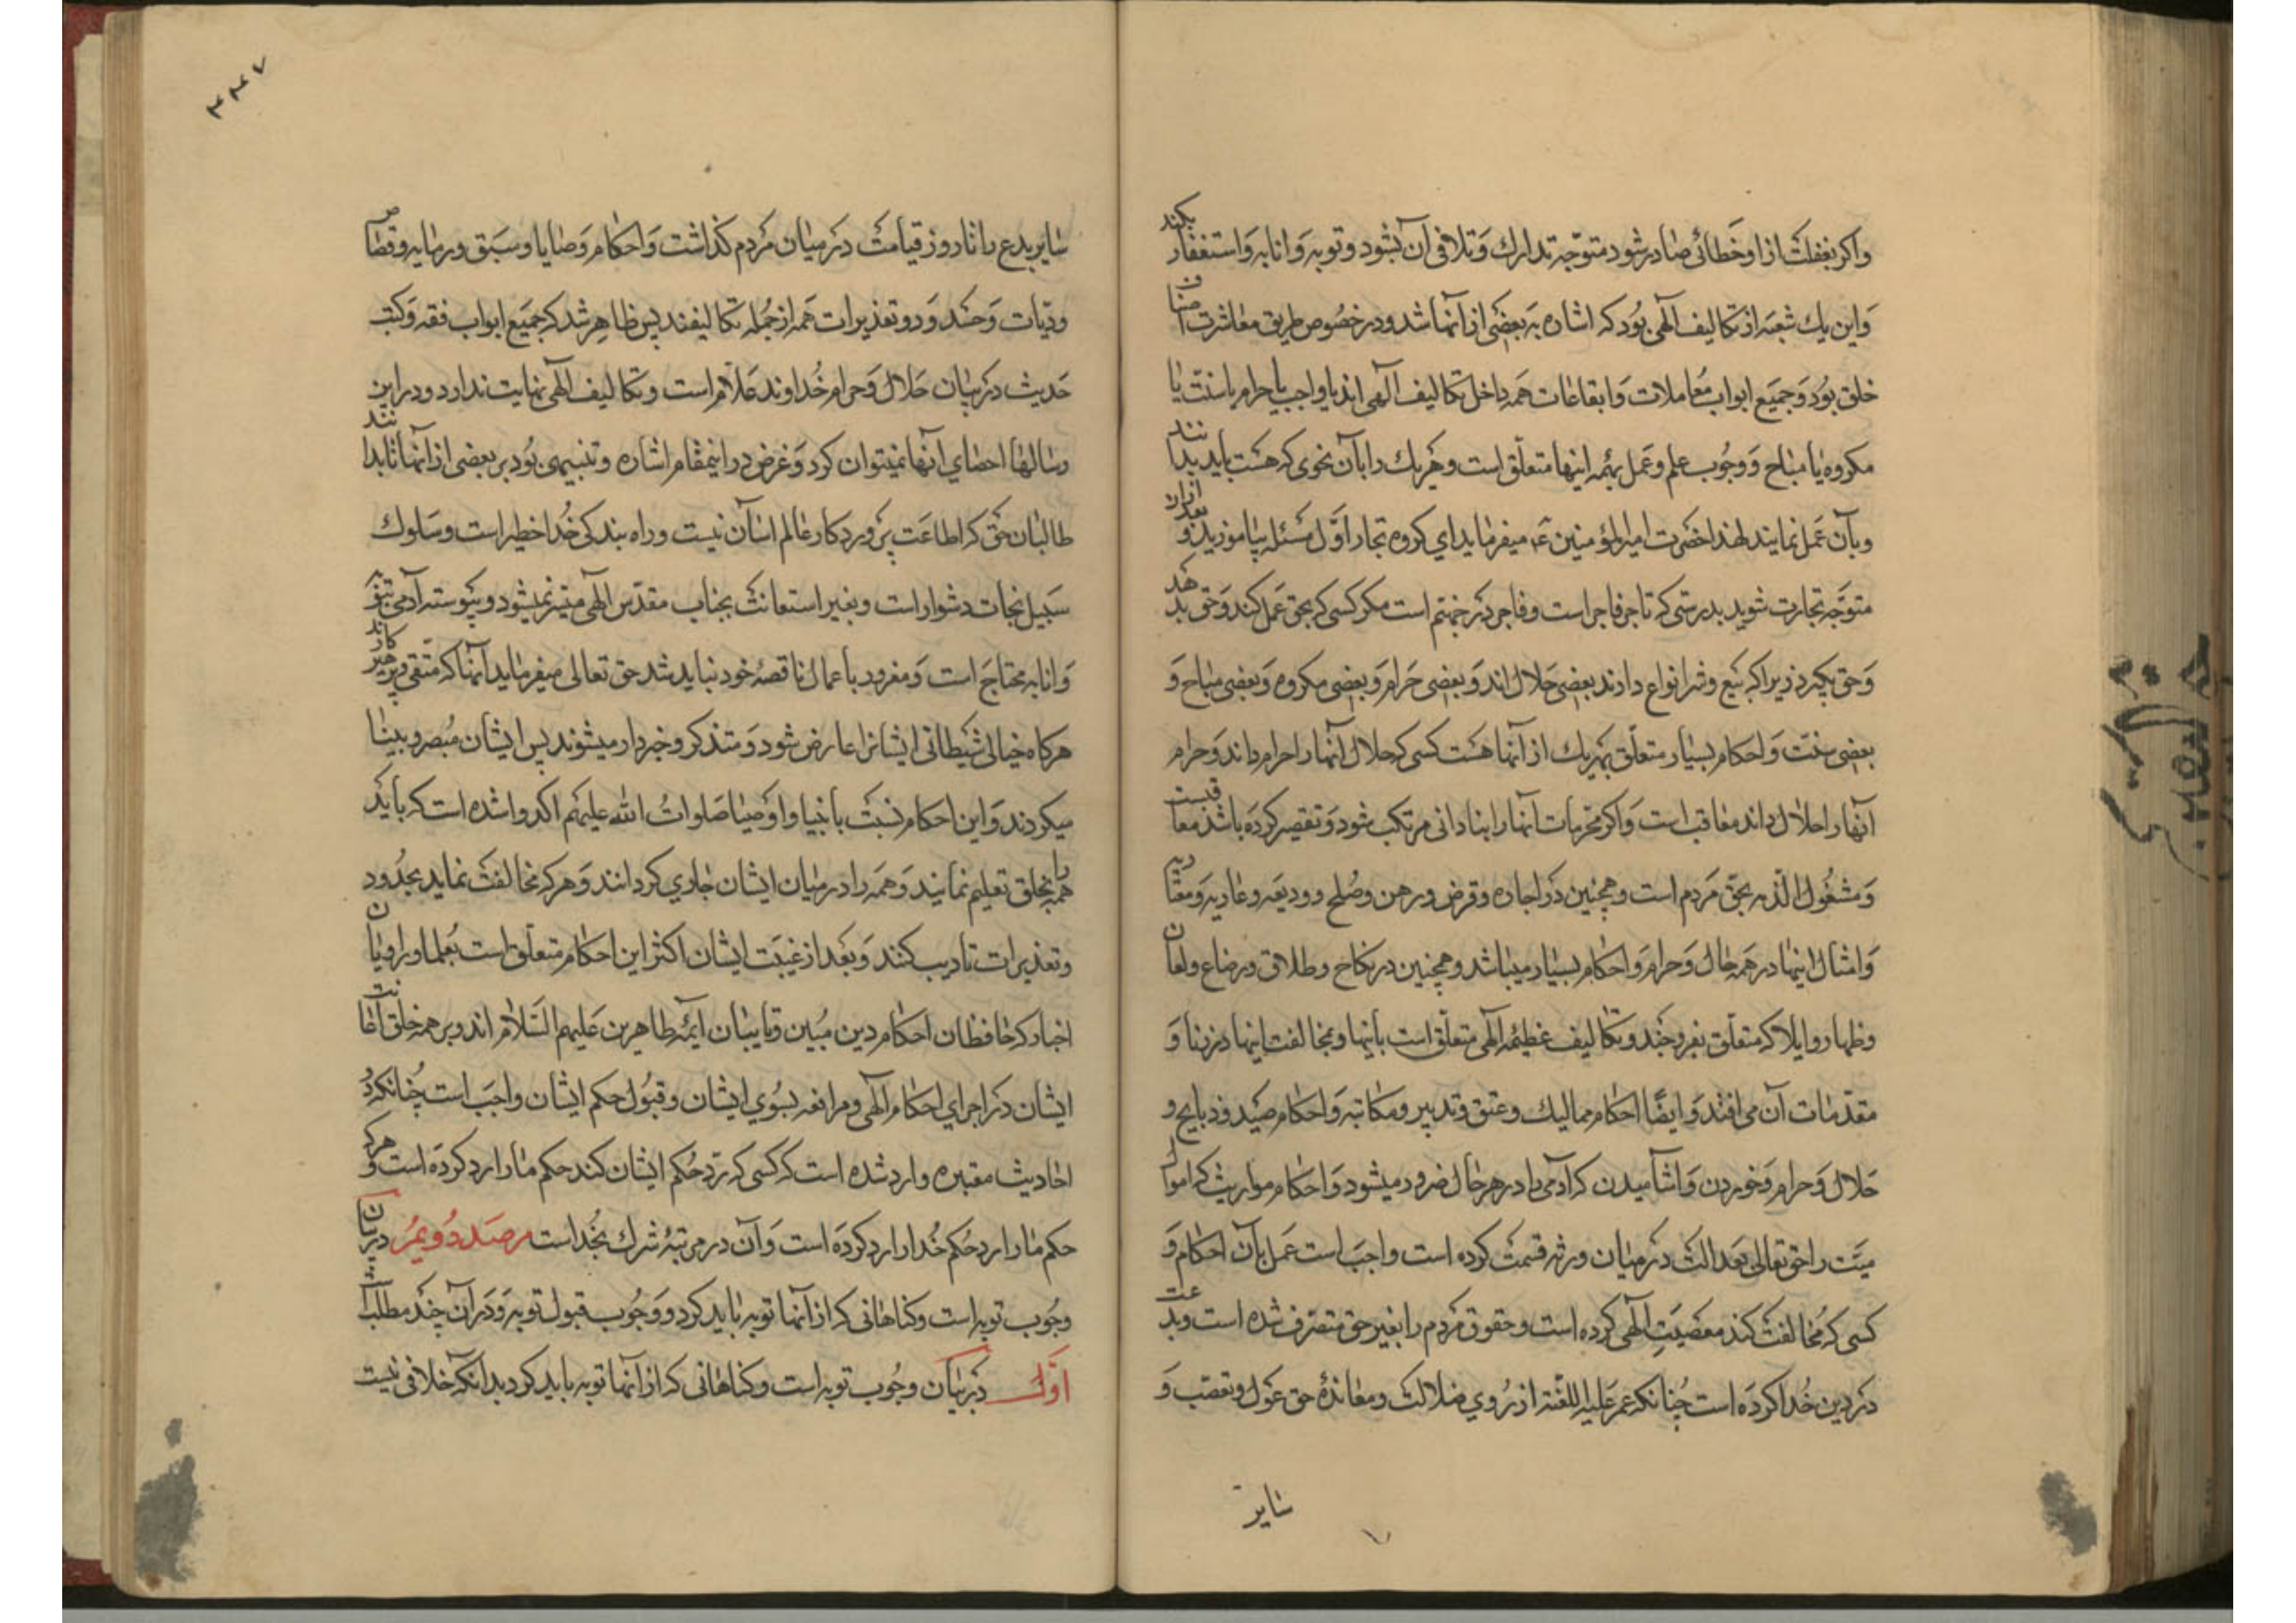 واکر بغفلت از او خطائی صادر شود متوجّه تدارک و تلافی آن بشود و توبه و انابه و استغفار بکند
و این یک شعبه از تکالیف آلهی بود که اشاره به بعضی از آنها شد و در خصوص طریق معاشرت اصناف
خلق بود و جمیع ابواب معاملات و ایقاعات همه داخل تکالیف آلهی اند یا واجب یا حرام یا سنّت یا
مکروه یا مباح و وجوب علم و عمل بهمه اینها متعلّق است و هر یک را بآن نحوی که هست باید بدانند
و بآن عمل نمایند لهذا حضرت امیرالمؤمنین ع میفرماید ای کروه تجار اوّل مسئله بیاموزید و بعد از آن
متوجّه تجارت شوید بدرستی که تاجر فاجر است و فاجر در جهنّم است مکر کسی که بحق عمل کند و حق بدهد
و حق بکیرد زیرا که بیع و شرا انواع دارند بعضی حلال اند و بعضی حرام و بعضی مکروه و بعضی مباح و
بعضی سنّت و احکام بسیار متعلّق بهر یک از آنها هست کسی که حلال آنها را حرام داند و حرام
آنها را حلال داند معاقب است و اکر محرمات آنها را بنادانی مرتکب شود و تقصیر کرده باشد معاقبست
و مشغول الذّمه بحقّ مردم است و همچنین در اجاره و قرض و رهن و صلح و ودیعه و عاریه و
و امثال اینها در همه حلال و حرام و احکام بسیار میباشد و همچنین در نکاح و طلاق و رضاع و لعان
و ظهار و ایلا که متعلّق بفروجند و تکالیف عظیمهٔ الهی متعلّق است بآنها و بمخالفت اینها در زنا و
مقدّمات آن می افتند و ایضًا احکام ممالیک و عتق و تدبیر و مکاتبه و احکام صید و ذبایح و
حلال و حرام و خوردن و اشامیدن که آدمی را در هر حال ضرور میشود و احکام مواریث که اموال
میّت را حق تعالی بعدالت در میان ورثه قسمت کرده است واجب است عمل بآن احکام و
کسی که مخالفت کند معصیت الهی کرده است و حقوق مردم را بغیر حق متصرف شده است و بدعت
در دین خدا کرده است چنانکه عمر علیه اللعنه از روی ضلالت و معاندهٔ حق عول و تعصّب و
سایر
۳۴۷
سایر بدع را تا روز قیامت در میان مردم کذاشت و احکام وصایا و سبق و رمایه و قصاص
و دیّات و حدود و تعذیرات همه از جمله تکالیفند پس ظاهر شد که جمیع ابواب فقه و کتب
حدیث در بیان حلال و حرام خداوند علّام است و تکالیف الهی نهایت ندارد و در این
رسالها احصای آنها نمیتوان کرد و غرض در اینمقام اشاره و تنبیهی بود بر بعضی از آنها تا بدانند
طالبان حق که اطاعت پروردکار عالم اسان نیست و راه بندکی خدا خطیر است و سلوک
سبیل نجات دشوار است و بغیر استعانت بجناب مقدّس الهی میسّر نمیشود و پیوسته آدمی بتوبه
و انابه محتاج است و مغرور باعمال ناقصهٔ خود نباید شد حق تعالی میفرماید آنها که متّقی و پرهیزکارند
هرکاه خیالی شیطانی ایشانرا عارض شود و متذکر و خبردار میشوند پس ایشان مبصر و بینا
میکردند و این احکام نسبت بانبیا و اوصیا صلوات الله علیهم اکد و اشده است که باید
همه را بخلق تعلیم نمایند و همه را در میان ایشان جاری کردانند و هرکه مخالفت نماید بحدود
و تعذیرات تادیب کنند و بعد از غیبت ایشان اکثر این احکام متعلّق است بعلما و راویان
اخبار که حافظان احکام دین مبین و نایبان ایمهٔ طاهرین علیهم السّلام اند و بر همه خلق اعانت
ایشان در اجرای احکام الهی و مرافعه بسوی ایشان و قبول حکم ایشان واجب است چنانکه در
احادیث معتبره وارد شده است که کسی که ردّ حکم ایشان کند حکم ما را رد کرده است و هرکه
حکم ما را رد حکم خدا را رد کرده است و آن در مرتبهٔ شرک بخداست مرصد دویمُ در بیان
وجوب توبه است و کناهانی که از آنها توبه باید کرد و وجوب قبول توبه و در آن چند مطلب است
اوّل در بیان وجوب توبه است و کناهانی که از آنها توبه باید کرد بدانکه خلافی نیست